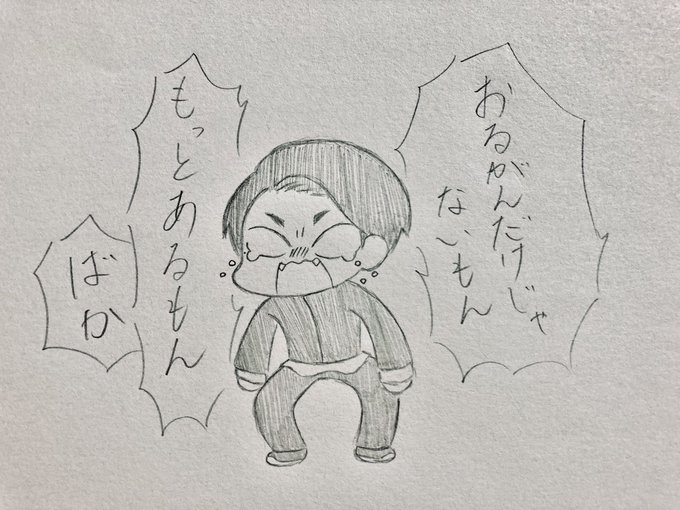 おるがんだけじゃ
ないもん
もっとあるもん
ばか